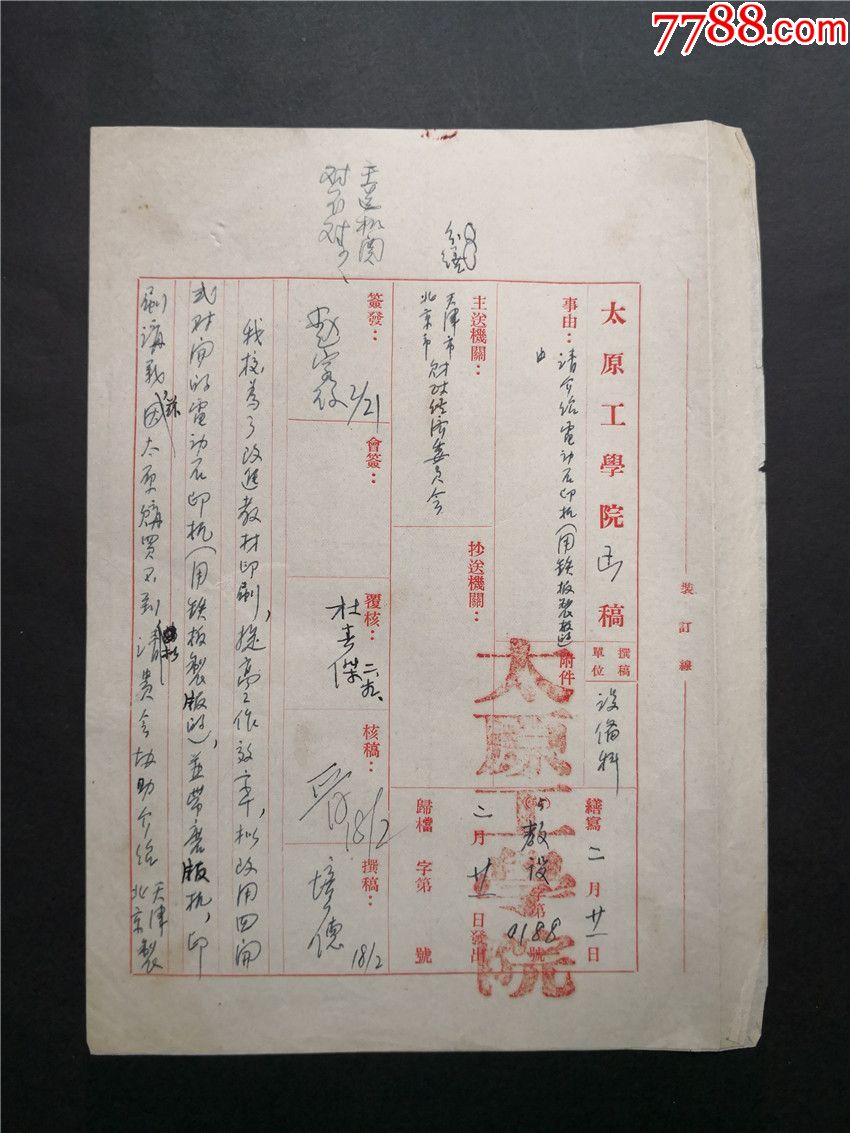 7788.com
裝訂線
太原工學院函稿
撰稿單位
設備科
繕寫 二月廿一日
事由：請介紹電动石印机（用鉄板製版的）
附件
(55)教設字第0188號
二月廿一日發出
歸檔 字第 號
主送機關：
天津市
北京市
財政经济委員会
抄送機關：
簽發：
2/21
會簽：
覆核：
杜春傑
核稿：
18/2
撰稿：
培德 18/2
主送机関
我校為了改進教材印刷，提高工作效率，拟改用四開
式对開的電动石印机（用鉄板製版的），並带磨版机，印
刷講义，因太原購買不到，請貴会协助介紹天津北京製
太原工學院